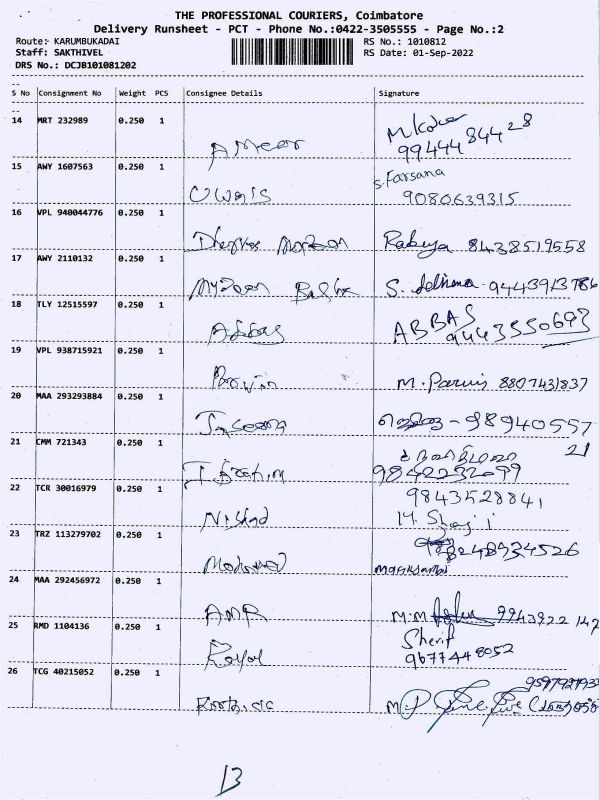 THE PROFESSIONAL COURIERS, Coimbatore
Delivery Runsheet - PCT - Phone No.:0422-3505555 - Page No.:2
Route:- KARUMBUKADAI RS No.: 1010812
Staff: SAKTHIVEL RS Date: 01-Sep-2022
DRS No.: DCJB101081202
S No Consignment No Weight PCS Consignee Details Signature
14 MRT 232989 0.250 1
Ameer 9944484428
15 AWY 1607563 0.250 1 S. Farsana
Owais 9080639315
16 VPL 940044776 0.250 1
Rabiya 8438519558
17 AWY 2110132 0.250 1
S. 9443913786
18 TLY 12515597 0.250 1
Abbas ABBAS 9443550693
19 VPL 938715921 0.250 1
Parvin M. Parvis 8807431837
20 MAA 293293884 0.250 1
- 98940557
21 CMM 721343 0.250 1 21
Ibrahim 9842232099
22 TCR 30016979 0.250 1 9843528841
Nishad M. Shaji
23 TRZ 113279702 0.250 1
24 MAA 292456972 0.250 1
AMR M.M 9943922 142
25 RMD 1104136 0.250 1 Sherif
Royal 9677448052
26 TCG 40215052 0.250 1
13